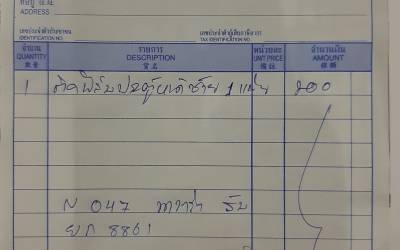 ที่อยู่
ADDRESS
เลขประจำตัวประชาชน
IDENTIFICATION NO.
เลขประจำตัวผู้เสียภาษีอากร
TAX IDENTIFICATION NO.
จำนวน รายการ หน่วยละ จำนวนเงิน
QUANTITY DESCRIPTION UNIT PRICE AMOUNT
1 ติดฟิล์มประตูหน้าซ้าย 1 แผ่น
N 047 ทาทา รับ
8861